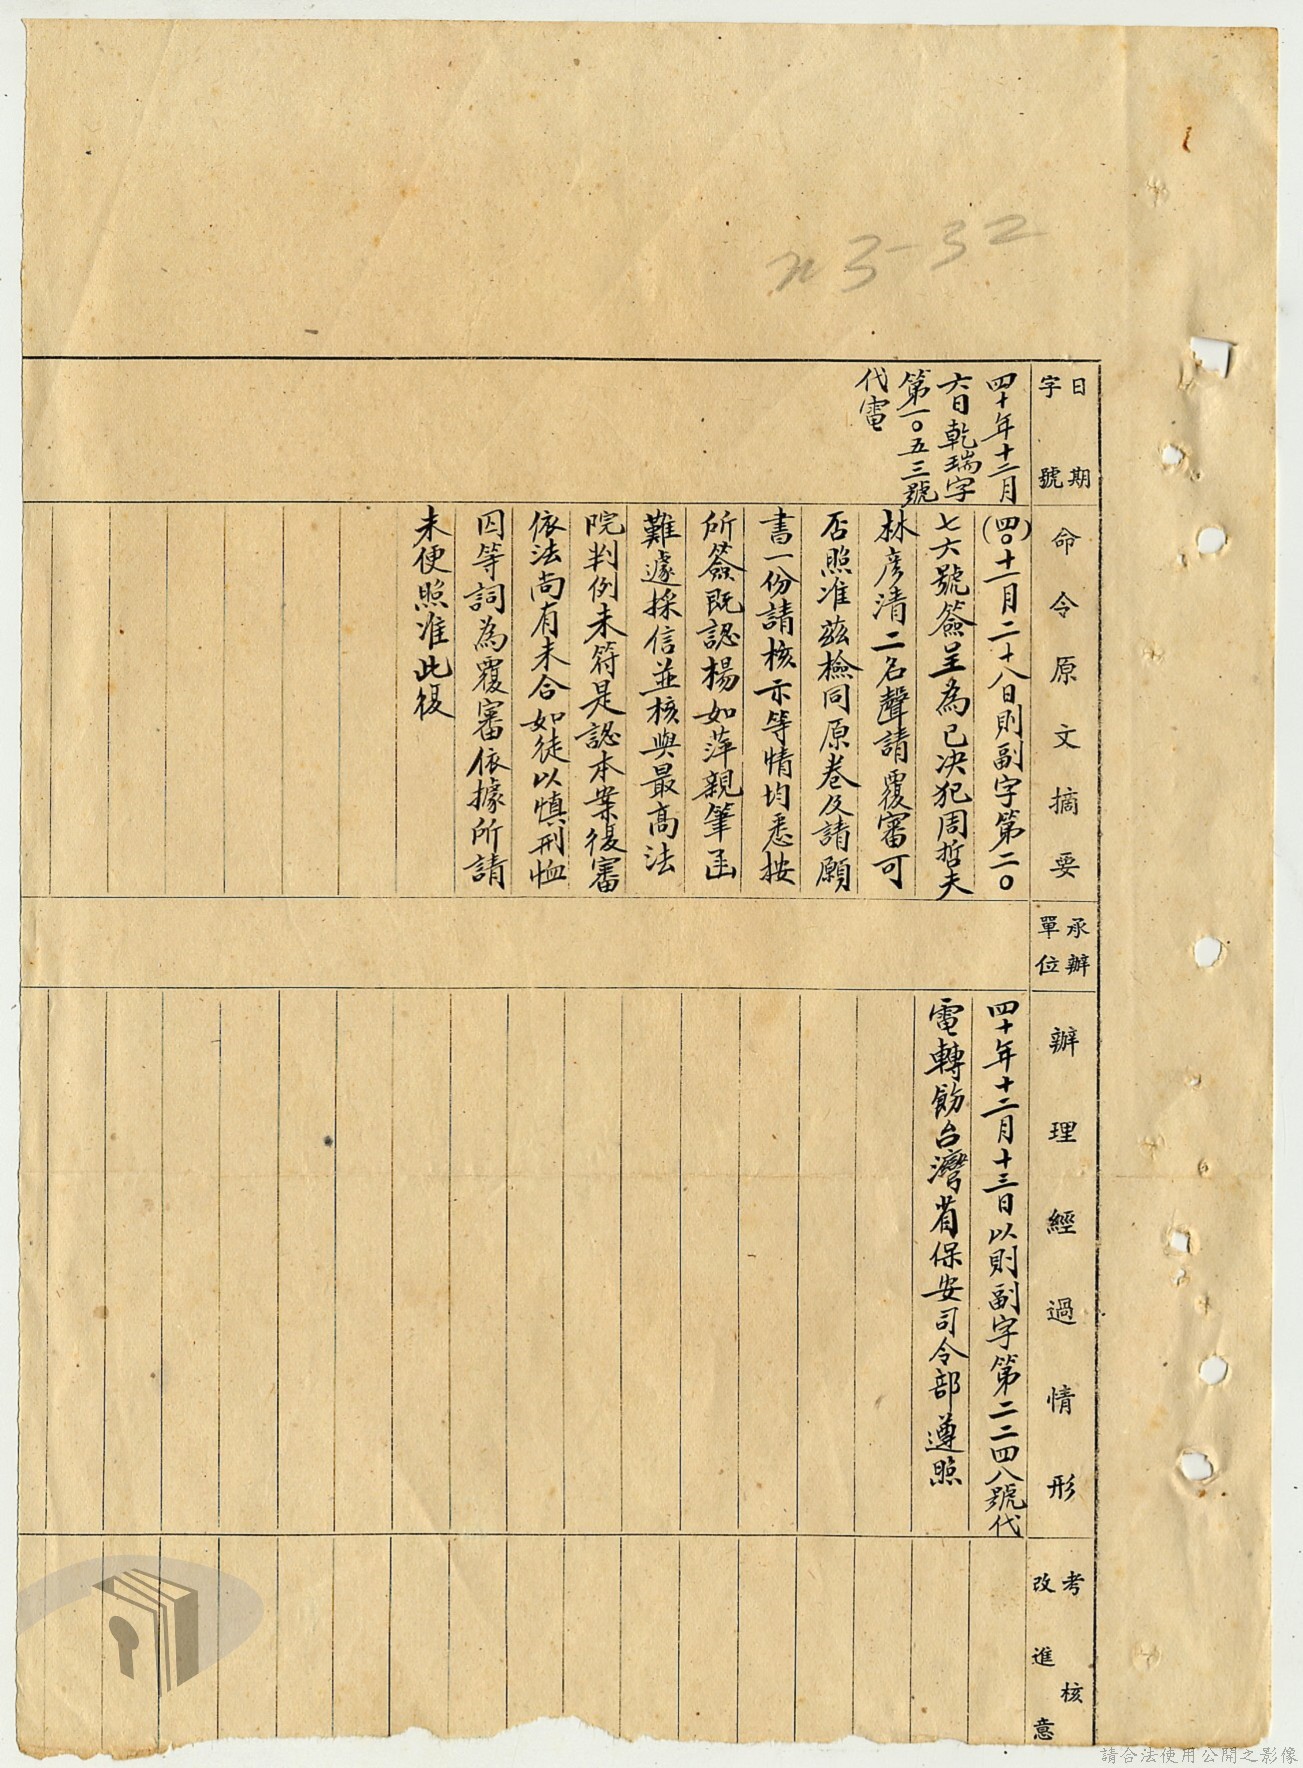 n3-32
日期
字號
命令原文摘要
承辦
單位
辦理經過情形
考核
改進意
四十年十二月
六日乾瑞字
第一〇五三號
代電
(四〇)十一月二十八日則副字第二〇
七六號簽呈為已決犯周哲夫
林彥清二名聲請覆審可
否照准茲檢同原卷及請願
書一份請核示等情均悉按
所簽既認楊如萍親筆函
難遽採信並核與最高法
院判例未符是認本案復審
依法尚有未合如徒以慎刑恤
囚等詞為覆審依據所請
未便照准此復
四十年十二月十三日以則副字第二二四八號代
電轉飭台灣省保安司令部遵照
請合法使用公開之影像